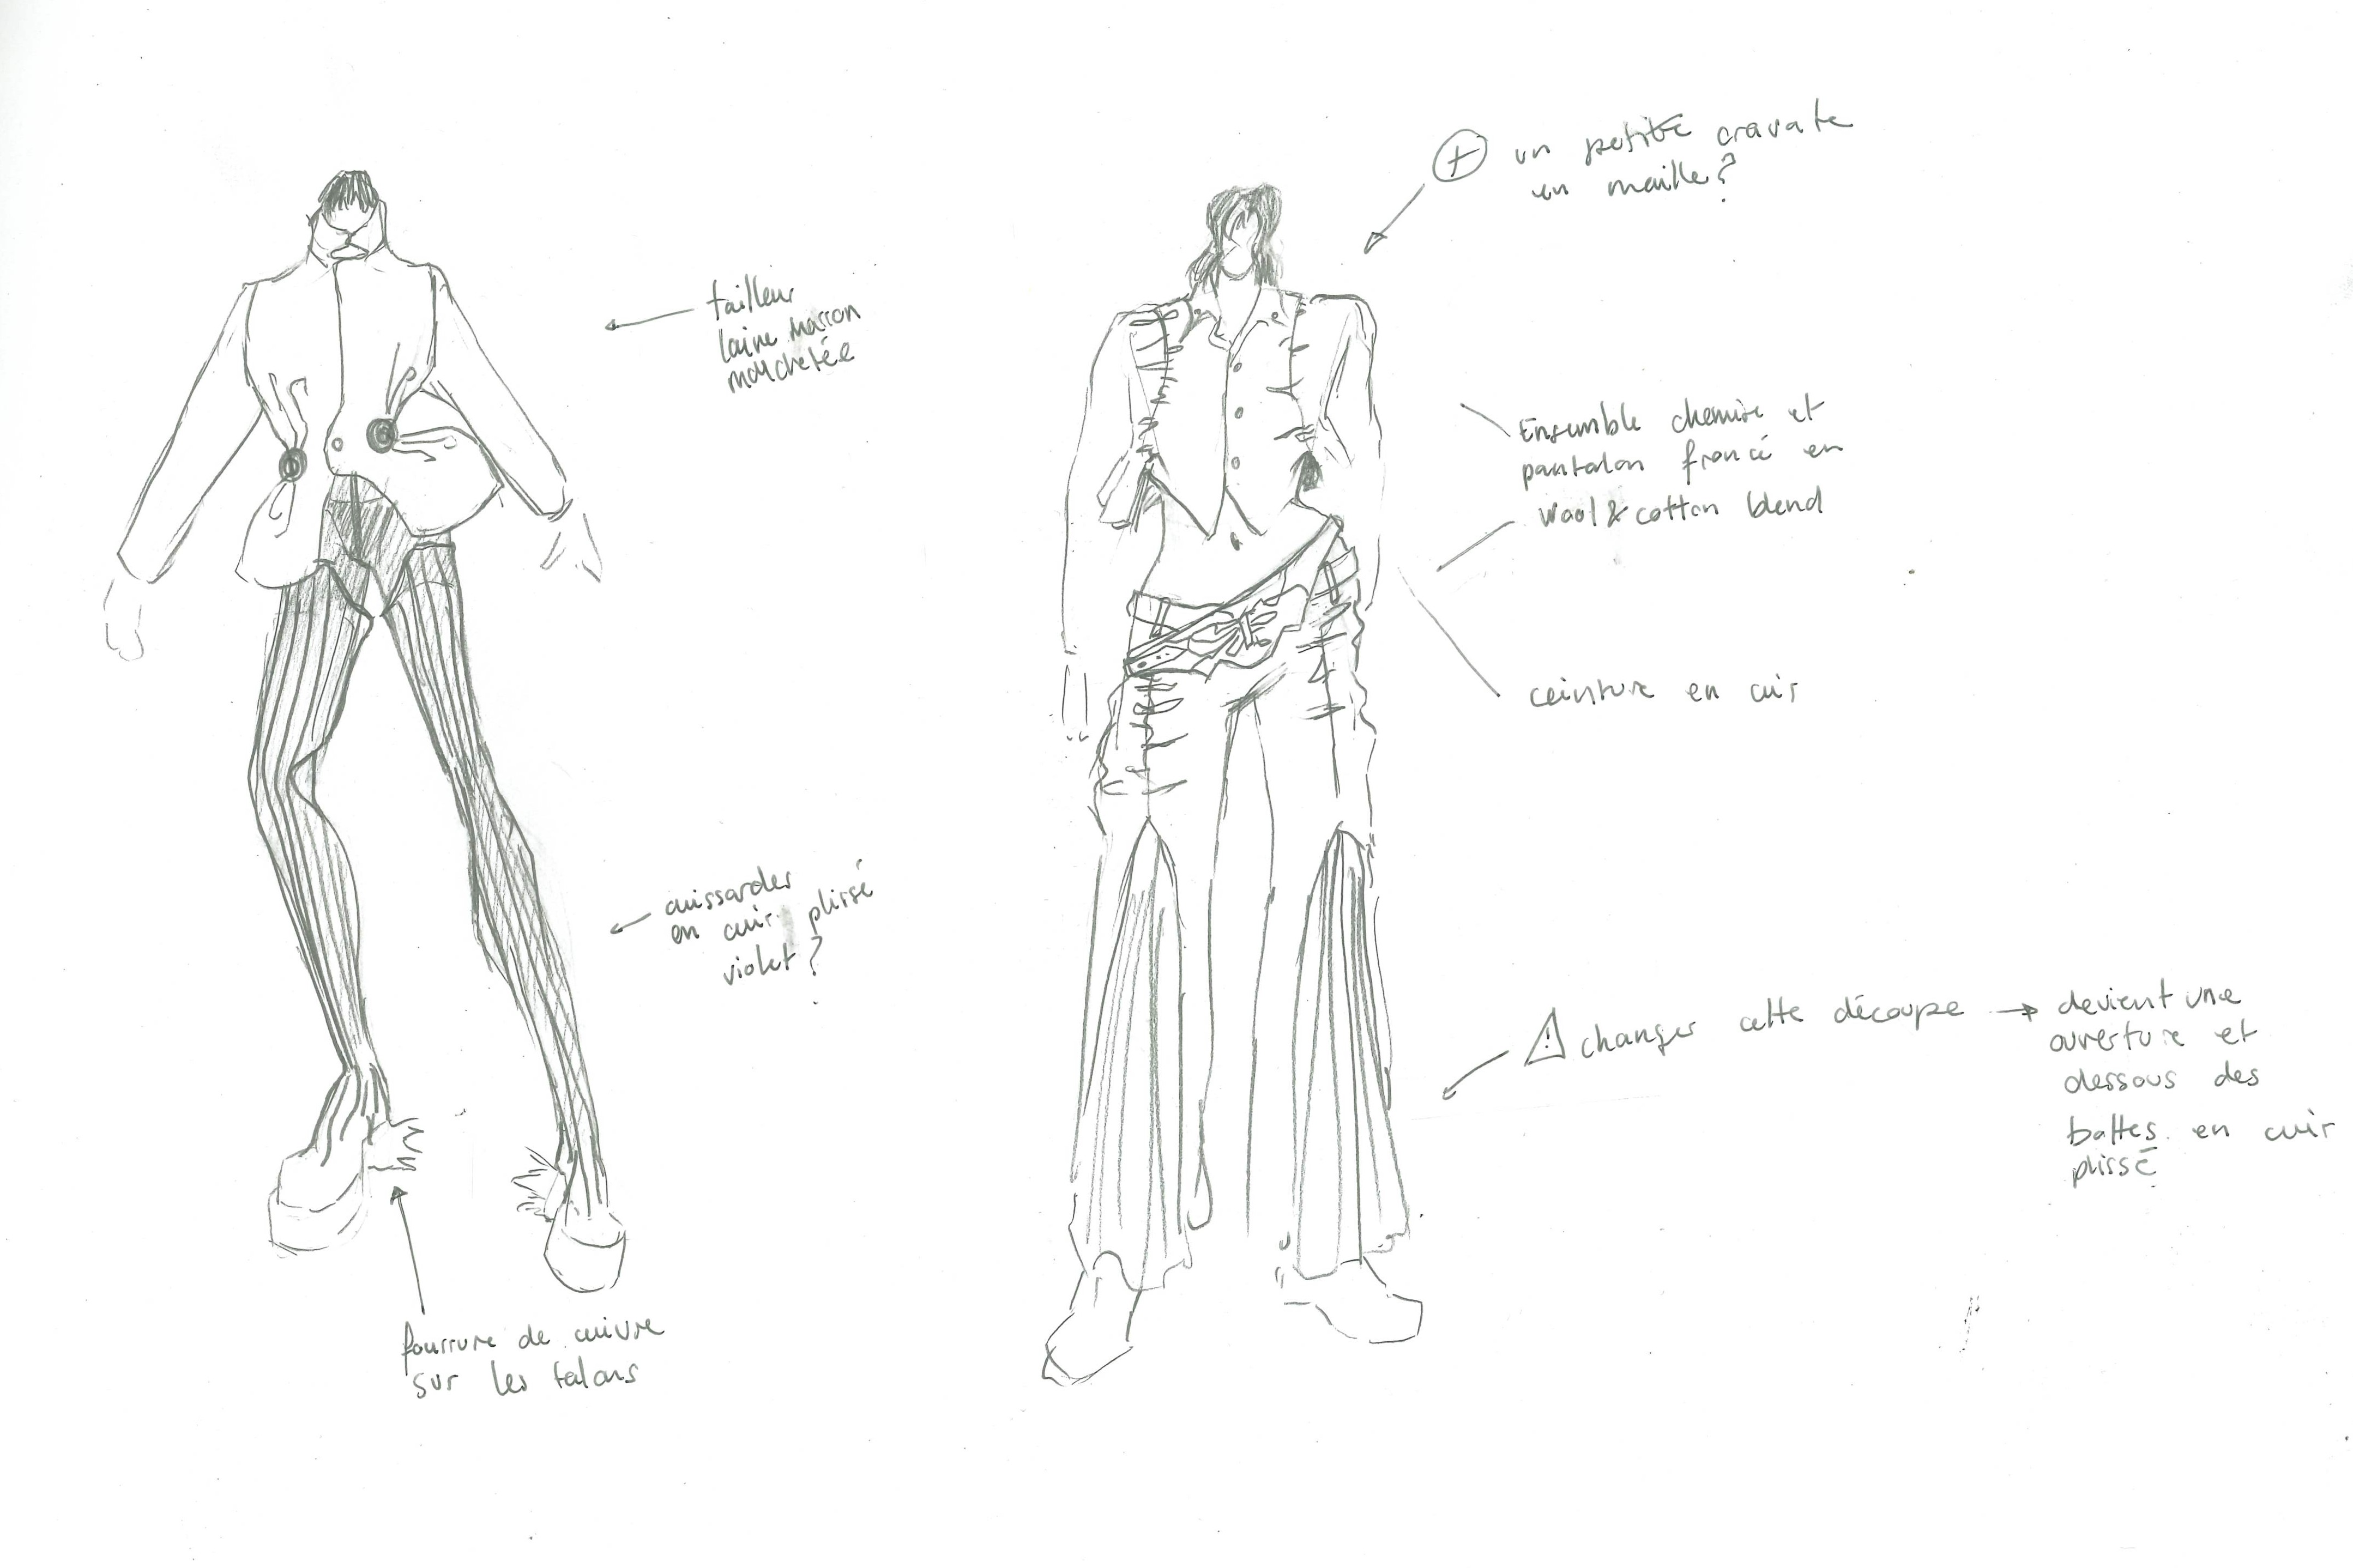 tailleur
laine marron
mouchetée
cuissardes
en cuir plissé
violet ?
fourrure de cuivre
sur les talons
+ un petite cravate
en maille ?
Ensemble chemise et
pantalon froncé en
wool & cotton blend
ceinture en cuir
! changer cette découpe → devient une
ouverture et
dessous des
bottes en cuir
plissé